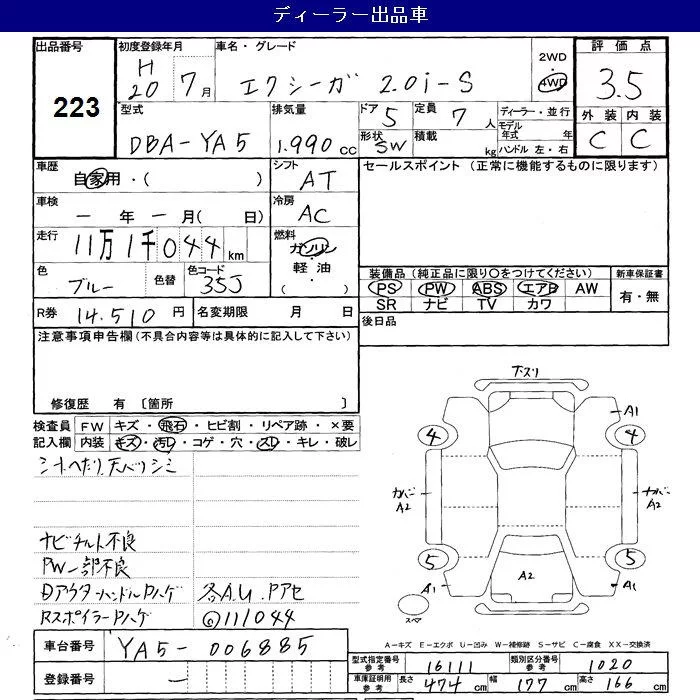 ディーラー出品車
出品番号 初度登録年月 車名・グレード 2WD 評価点
223 H 20 7月 エクシーガ 2.0i-S 4WD 3.5
型式 排気量 ドア 定員 ディーラー・並行 外装 内装
DBA-YA5 1.990cc 5 7人 モデル年式 年 C C
形状 積載 ハンドル 左・右
SW kg
車歴 シフト セールスポイント (正常に機能するものに限ります)
自家用・( ) AT
車検 冷房
ー年ー月( 日) AC
走行 燃料
11万1千044km ガソリン・軽油・( )
色 色替 色コード 装備品(純正品に限り○をつけてください) 新車保証書
ブルー 35J PS PW ABS エアB AW 有・無
SR ナビ TV カワ
R券 14.510円 名変期限 月 日 後日品
注意事項申告欄(不具合内容等は具体的に記入して下さい)
修復歴 有 〔箇所 〕
検査員 FW キズ・飛石・ヒビ割・リペア跡・×要
記入欄 内装 キズ・汚レ・コゲ・穴・スレ・キレ・破レ
シートヘたり、天バリシミ
ナビチルト不良
PW一部不良
Dアウターハンドルハゲ 各A.U.Pアセ
RスポイラーPハゲ ⑥111044
ホスリ
A1
4 4
カバー A2 カバー A2
5 5
A1 A2 A1
スペア
A-キズ E-エクボ U-凹み W-補修跡 S-サビ C-腐食 XX-交換済
車台番号 YA5-006885
登録番号 ー
型式指定番号 参考 16111 類別区分番号 参考 1020
車庫証明用 参考 長さ 474cm 幅 177cm 高さ 166cm